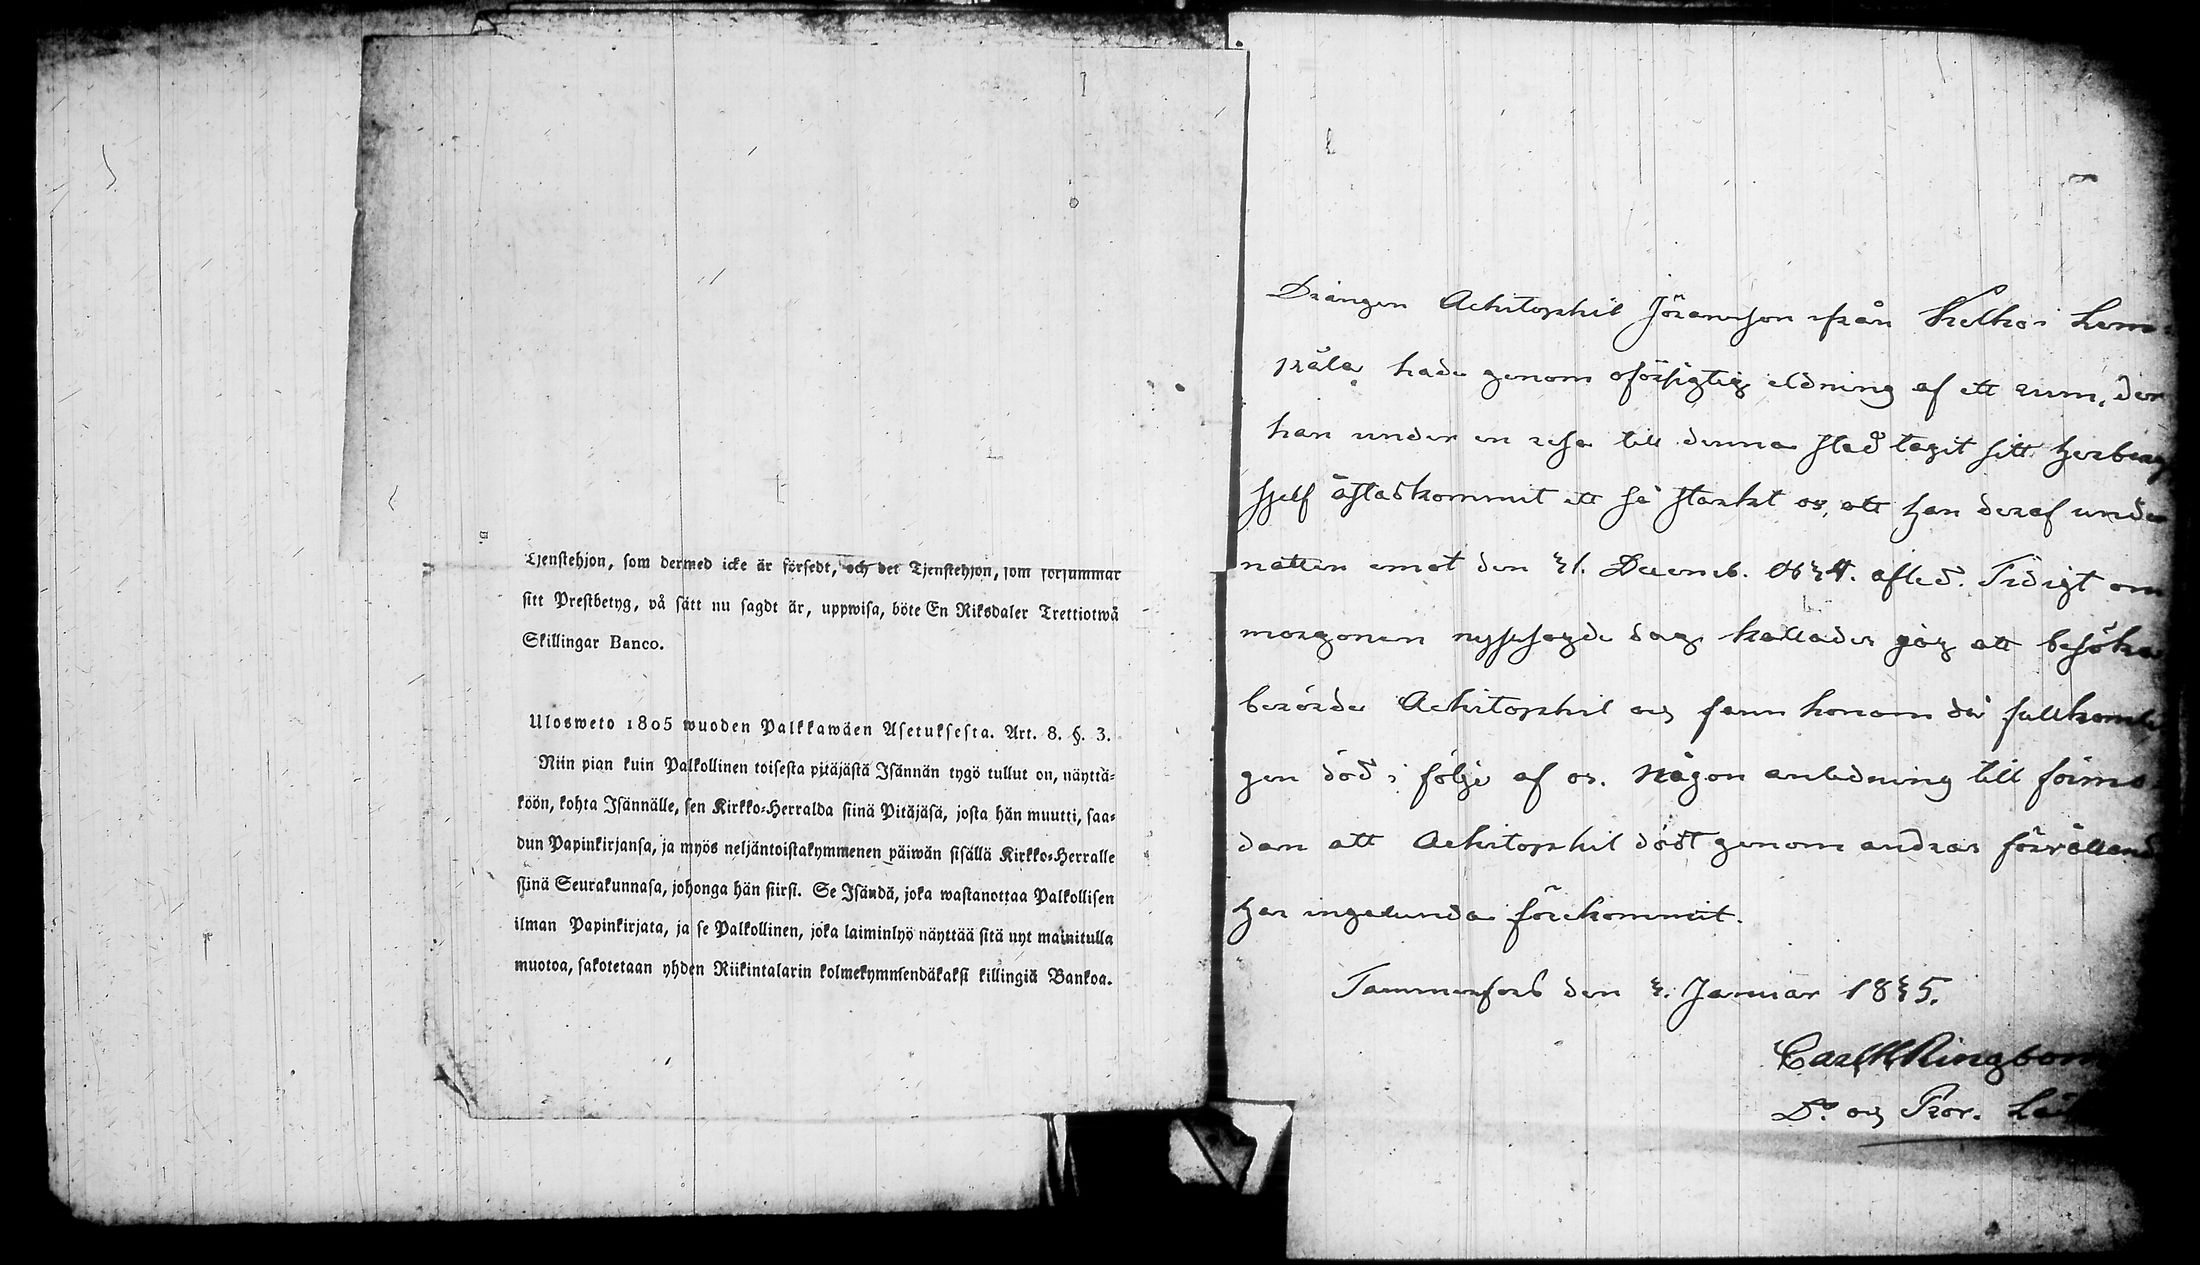 Tjenstehjon, som dermed icke är försedt, och det Tjenstehjon, som försummar
sitt Prestbetyg, på sätt nu sagdt är, uppwisa, böte En Riksdaler Trettiotwå
Skillingar Banco.
Ulosweto 1805 wuoden Palkkawäen Asetuksesta. Art. 8. §. 3.
Niin pian kuin Palkollinen toisesta pitäjästä Isännän tygö tullut on, näyttä-
köön, kohta Isännälle, sen Kirkko-Herralda siinä Pitäjäsä, josta hän muutti, saa-
dun Papinkirjansa, ja myös neljäntoistakymmenen päiwän sisällä Kirkko-Herralle
siinä Seurakunnasa, johonga hän siirsi. Se Isändä, joka wastanottaa Palkollisen
ilman Papinkirjata, ja se Palkollinen, joka laiminlyö näyttää sitä nyt mainitulla
muotoa, sakotetaan yhden Riikintalarin kolmekymnsendäkaksi killingiä Bankoa.
Drängen Achitophil Jöransson ifrån Kelho i Lem-
päla, hade genom oförsigtig eldning af ett rum, der
han under en resa till denna stad tagit sitt herberg
sjelf åstadkommit ett så starkt os, att han deraf under
natten emot den 21. Decemb. 1824. afled. Tidigt om
morgonen nyssagde dag kallades jag att besöka
berörde Achitophil och fann honom då fullkomli-
gen död i följe af os. Någon anledning till förmo-
dan att Achitophil dödt genom andras förvållande
har ingalunda förekommit.
Tammerfors den 2. Januar 1825.
Carl Ringbom
Dr och Prov. Läk